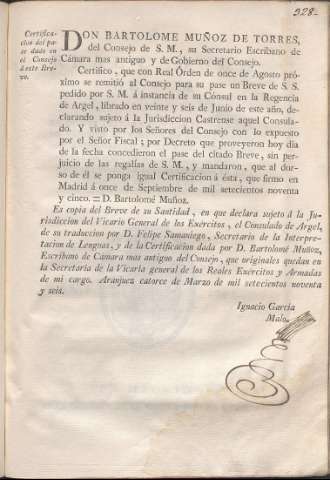 328.
Certifica-
cion del pa-
se dado en
el Consejo
á este Bre-
ve.
DON BARTOLOME MUÑOZ DE TORRES,
del Consejo de S. M., su Secretario Escribano de
Cámara mas antiguo y de Gobierno del Consejo.
Certifico, que con Real Órden de once de Agosto pró-
ximo se remitió al Consejo para su pase un Breve de S. S.
pedido por S. M. á instancia de su Cónsul en la Regencia
de Argel, librado en veinte y seis de Junio de este año, de-
clarando sujeto á la Jurisdiccion Castrense aquel Consula-
do. Y visto por los Señores del Consejo con lo expuesto
por el Señor Fiscal; por Decreto que proveyeron hoy dia
de la fecha concedieron el pase del citado Breve, sin per-
juicio de las regalías de S. M., y mandaron, que al dor-
so de él se ponga igual Certificacion á ésta, que firmo en
Madrid á once de Septiembre de mil setecientos noventa
y cinco. = D. Bartolomé Muñoz.
Es copia del Breve de su Santidad, en que declara sujeto á la Ju-
risdiccion del Vicario General de los Exércitos, el Consulado de Argel,
de su traduccion por D. Felipe Samaniego, Secretario de la Interpre-
tacion de Lenguas, y de la Certificacion dada por D. Bartolomé Muñoz,
Escribano de Cámara mas antiguo del Consejo, que originales quedan en
la Secretaría de la Vicaría general de los Reales Exércitos y Armadas
de mi cargo. Aranjuez catorce de Marzo de mil setecientos noventa
y seis.
Ignacio García
Malo.